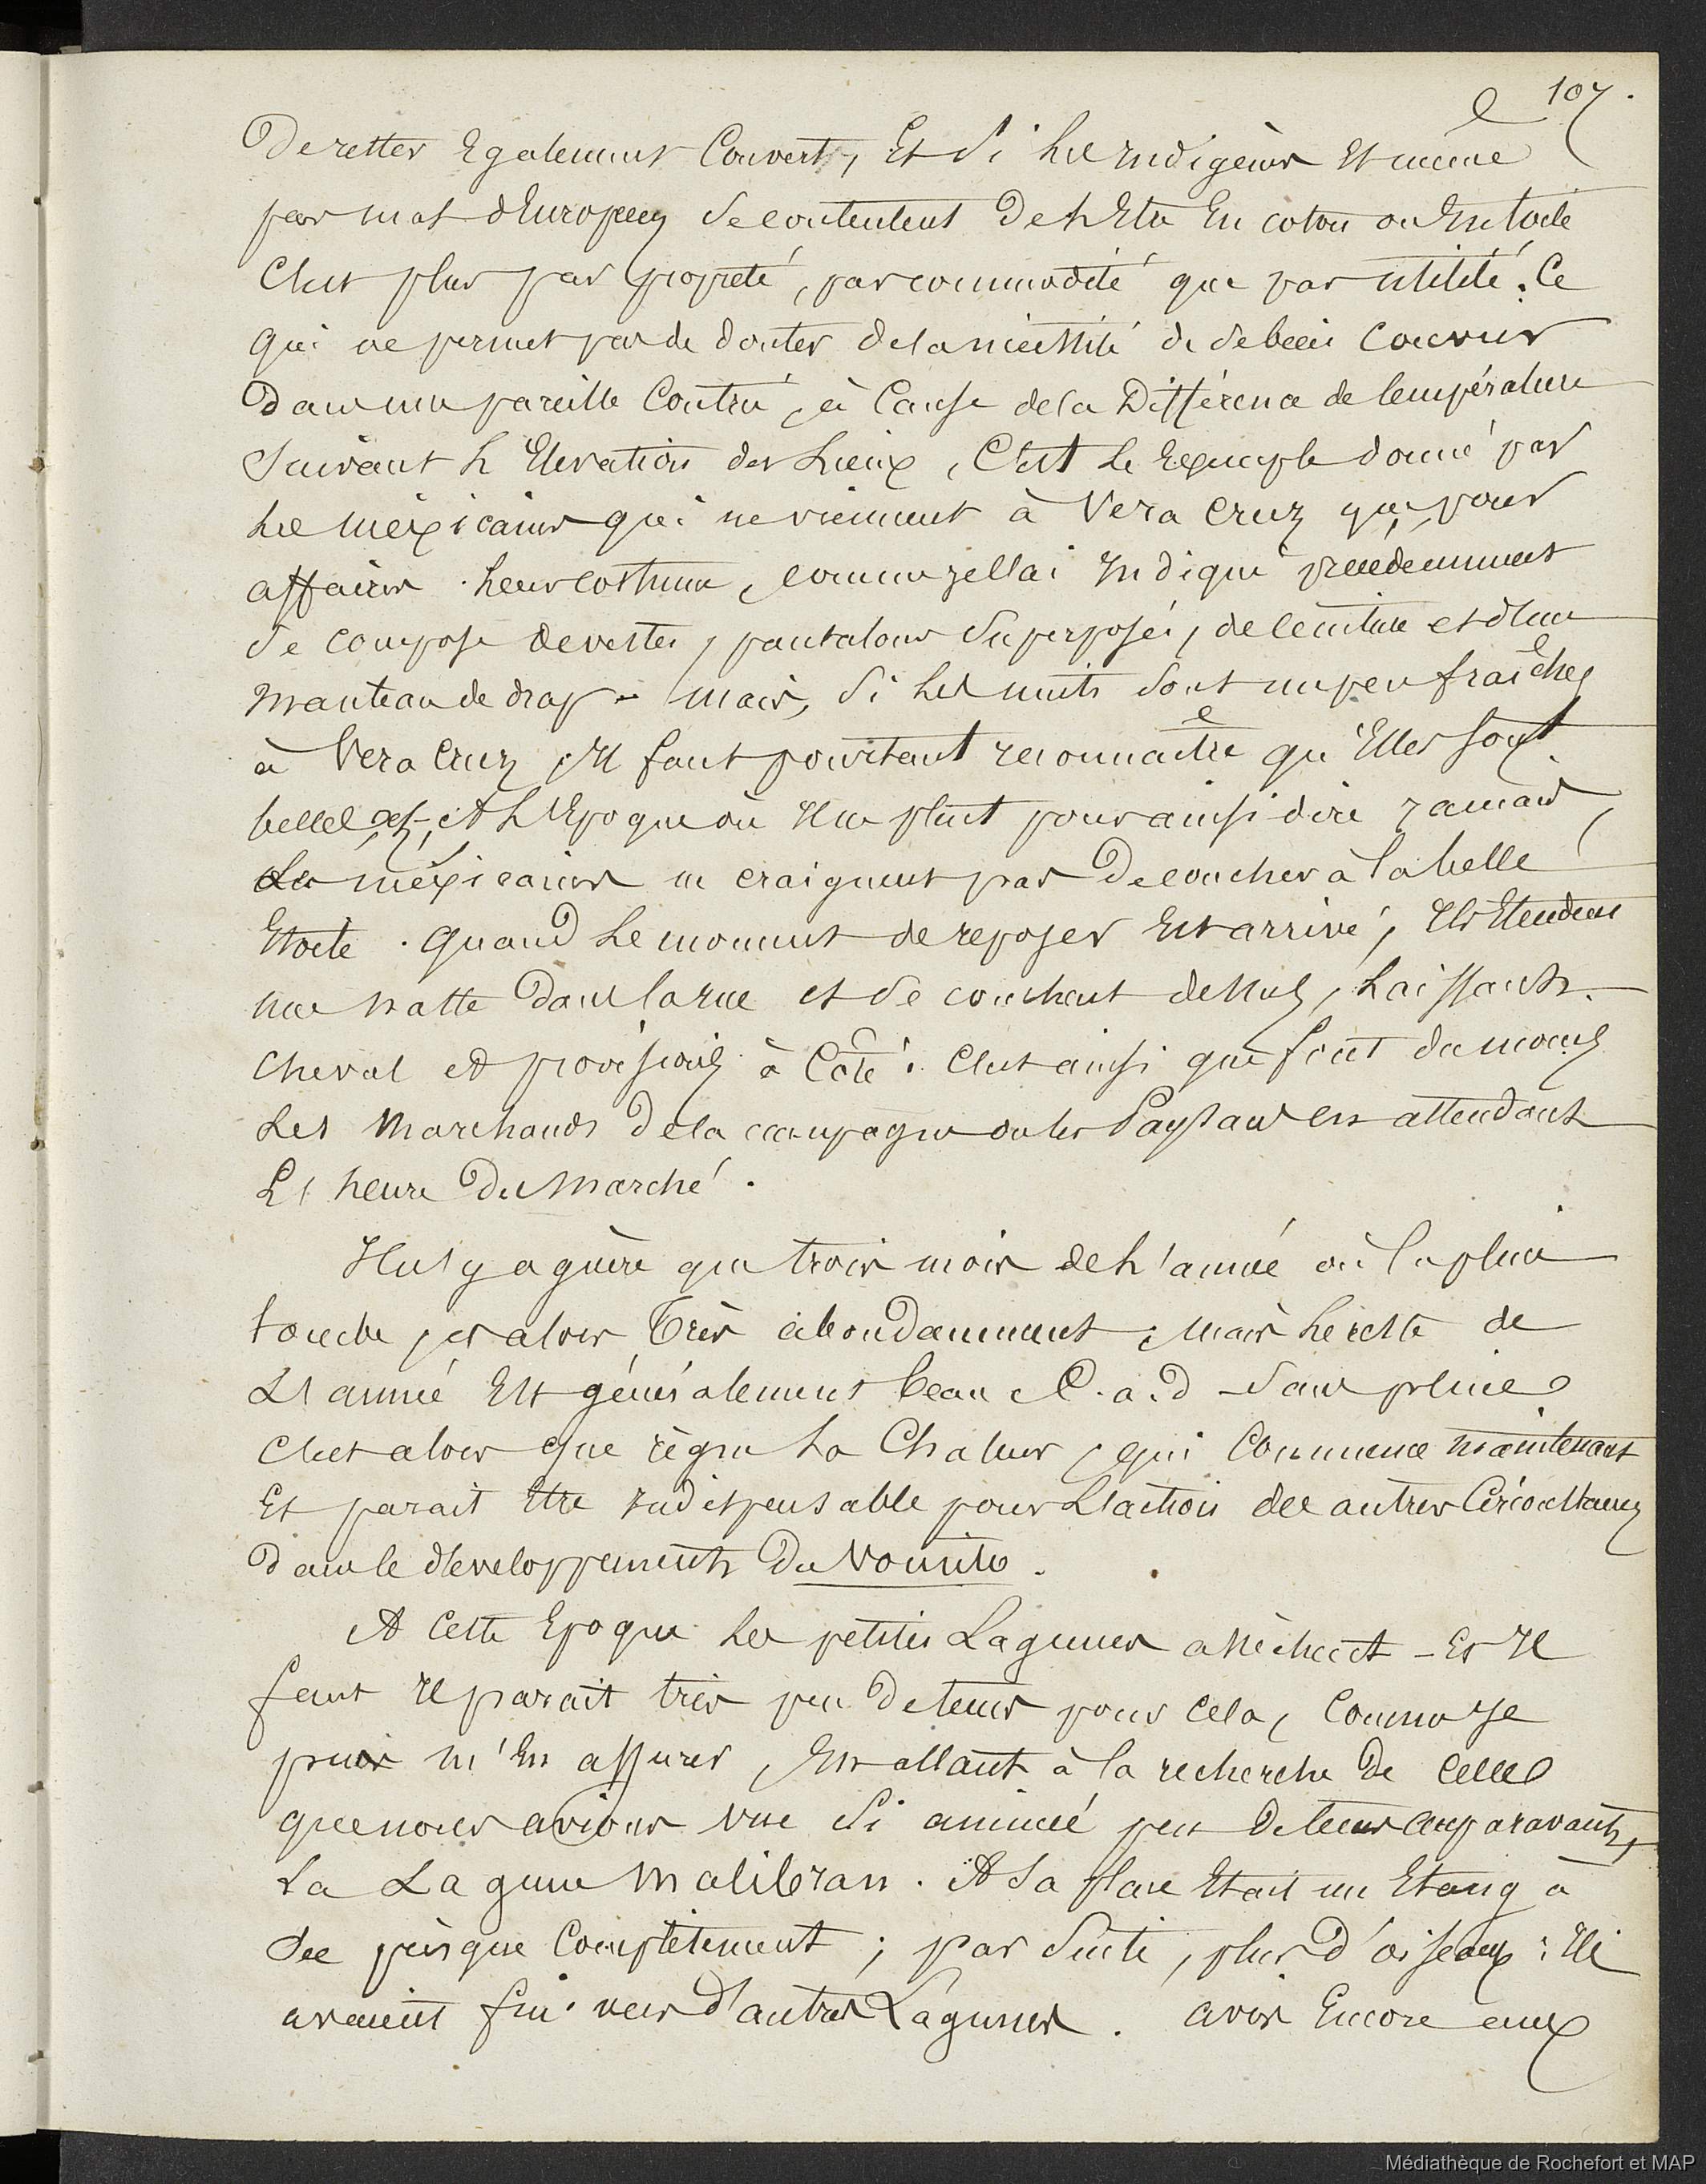 107.
De rester Egalement Couverts, Et Si les indigènes Et même
pas mal d'Europeens Se contentent De h Ets En coton ou En toile
C'est plus par propreté, par commodité que par utilité. Ce
qui ne permet pas de douter de la nécessité de se bien Couvrir
Dans une pareille Contrée, à Cause de la Différence de température
Suivant L'Elevation des Lieux, C'est Le Exemple donné par
Les mexicains qui ne viennent à Vera Cruz que pour
affaires. Leur costume, comme je l'ai Indiqué précedemment
Se compose de vestes, pantalons Superposés, de ceinture et d'un
Manteau de drap - mais, Si Les nuits Sont un peu fraîches
à Vera Cruz, Il faut pourtant reconnaître qu'Elles Sont
belles, et, A L'Epoque où Il ne pleut pour ainsi dire jamais,
Les mexicains ne craignent pas De coucher à la belle
Etoile. Quand Le moment de reposer Est arrivé, Ils Etendent
une natte Dans la rue et Se couchent dessus, Laissant
Cheval et provisions à Côté. C'est ainsi que font du moins
Les Marchands De la campagne ou les Paysans En attendant
L'heure Du Marché.
Il n'y a guère que trois mois de L'année où la pluie
tombe, et alors Très abondamment, Mais Le reste de
L'année Est généralement beau C. a. d - Sans pluie
C'est alors que règne La Chaleur, qui Commence maintenant
Et parait Etre Indispensable pour L'action des autres Circonstances
Dans le developpement Du Vomito.
A Cette Epoque Les petites Lagunes assèchent - Et Il
faut Il parait très peu De tems pour cela, Comme Je
puis m'En assurer, En allant à la recherche de celle
que nous avions vue Si animée peu De tems auparavant,
La Lagune Malibran. A Sa place Etait un Etang à
Sec presque Complètement; par Suite, plus d'oiseaux: Ils
avaient fui vers d'autres Lagunes. avis Encore aux
Médiathèque de Rochefort et MAP